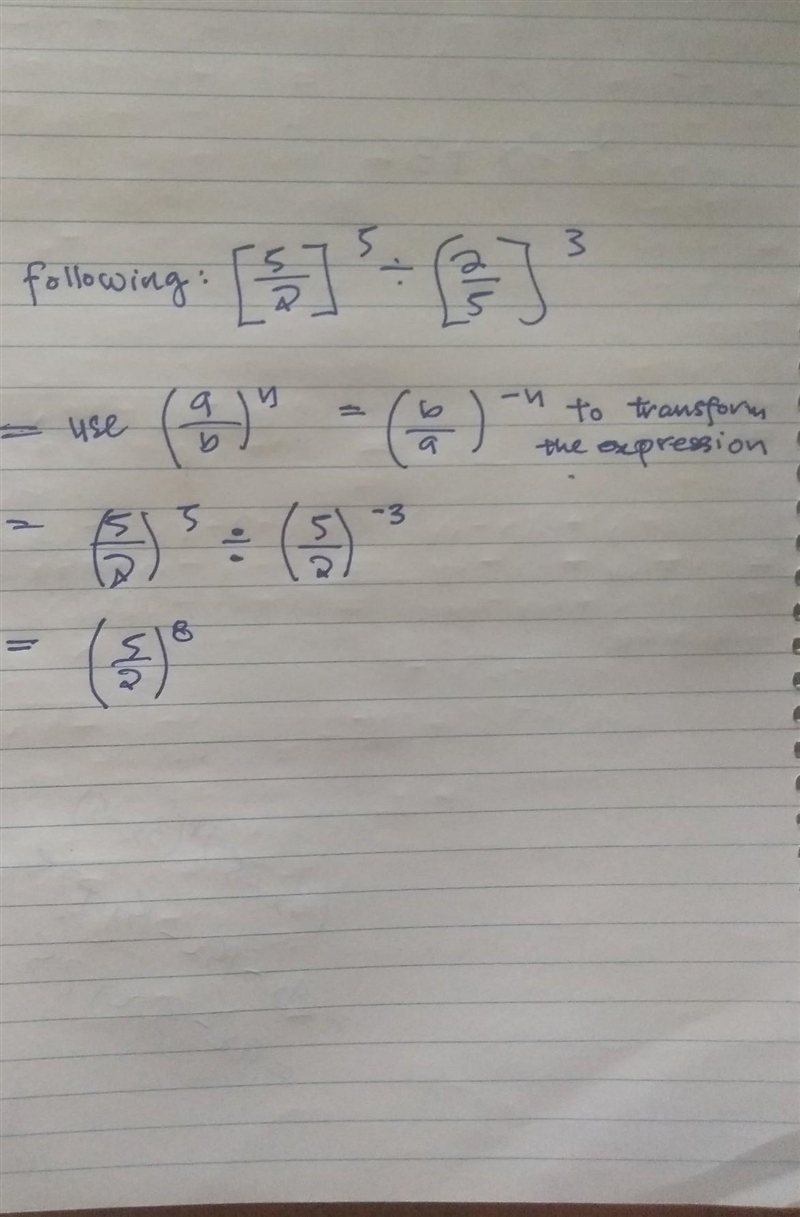 following: [5/2]^5 ÷ [2/5]^3
= use (a/b)^n = (b/a)^-n to transform
the expression
= (5/2)^5 ÷ (5/2)^-3
= (5/2)^8